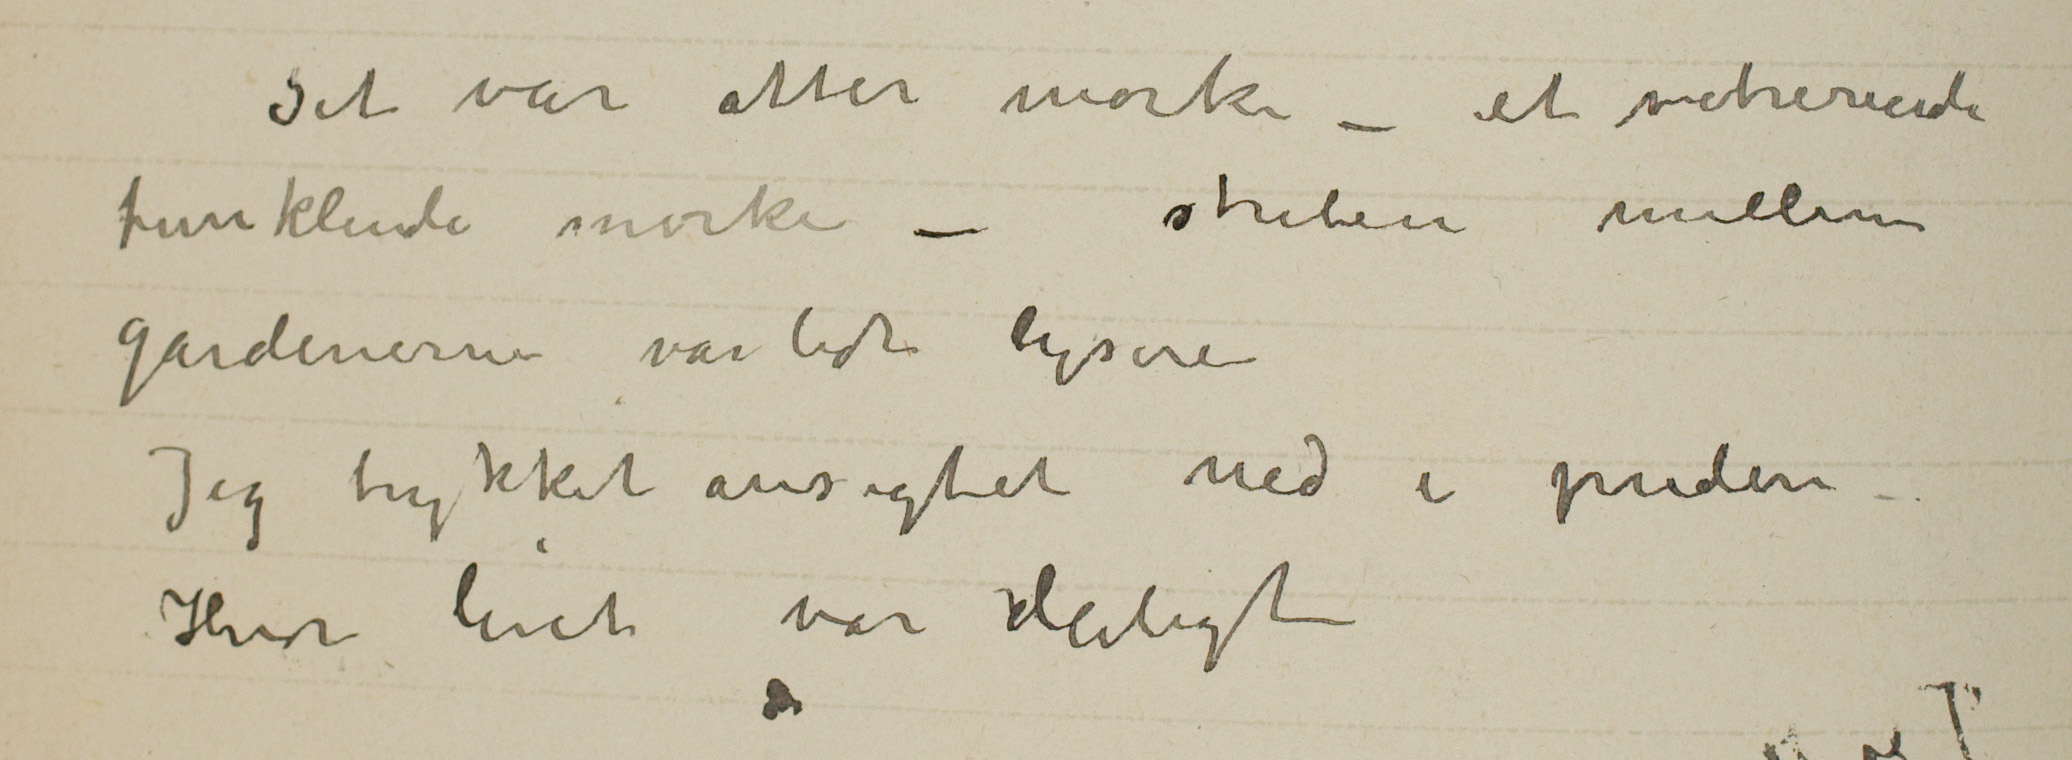 Det var atter mørke – et vibrerende
funklende mørke – striben mellem
gardenerne var lidt lysere
Jeg trykket ansigtet ned i puden –
Hvor livet var deiligt